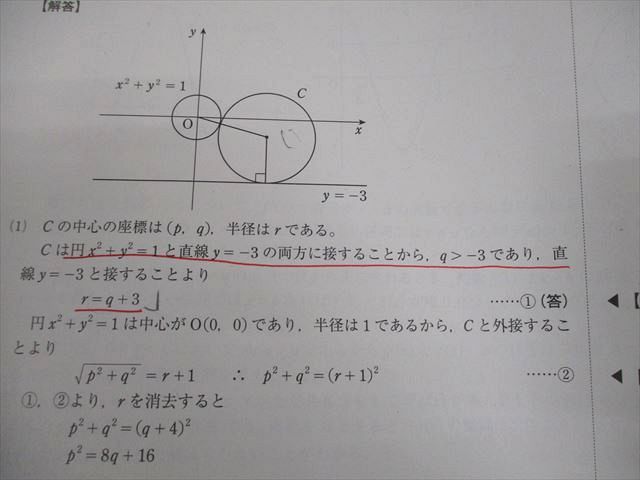 【解答】
y
x² + y² = 1
C
O
x
y = −3
(1) Cの中心の座標は(p, q)，半径はrである。
Cは円x²+y²=1と直線y=−3の両方に接することから，q>−3であり，直
線y=−3と接することより
r=q+3 ……①(答)
円x²+y²=1は中心がO(0, 0)であり，半径は1であるから，Cと外接するこ
とより
√(p²+q²) = r+1 ∴ p²+q²=(r+1)² ……②
①，②より，rを消去すると
p²+q²=(q+4)²
p²=8q+16